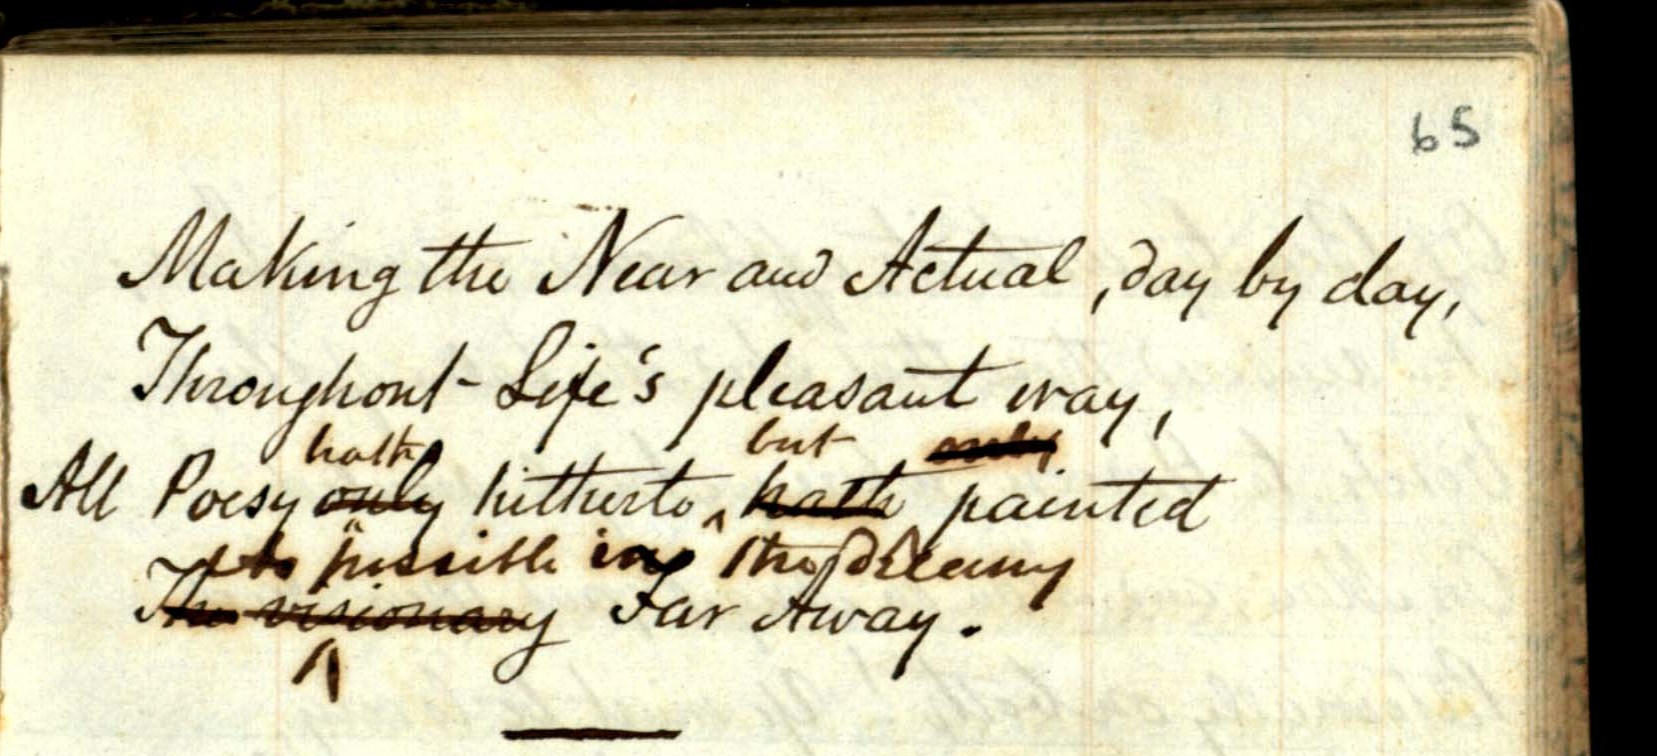 65
Making the Near and Actual, day by day,
Throughout Life's pleasant way,
hath but only
All Poesy only hitherto, hath painted
possible in the dreamy
The visionary Far Away.